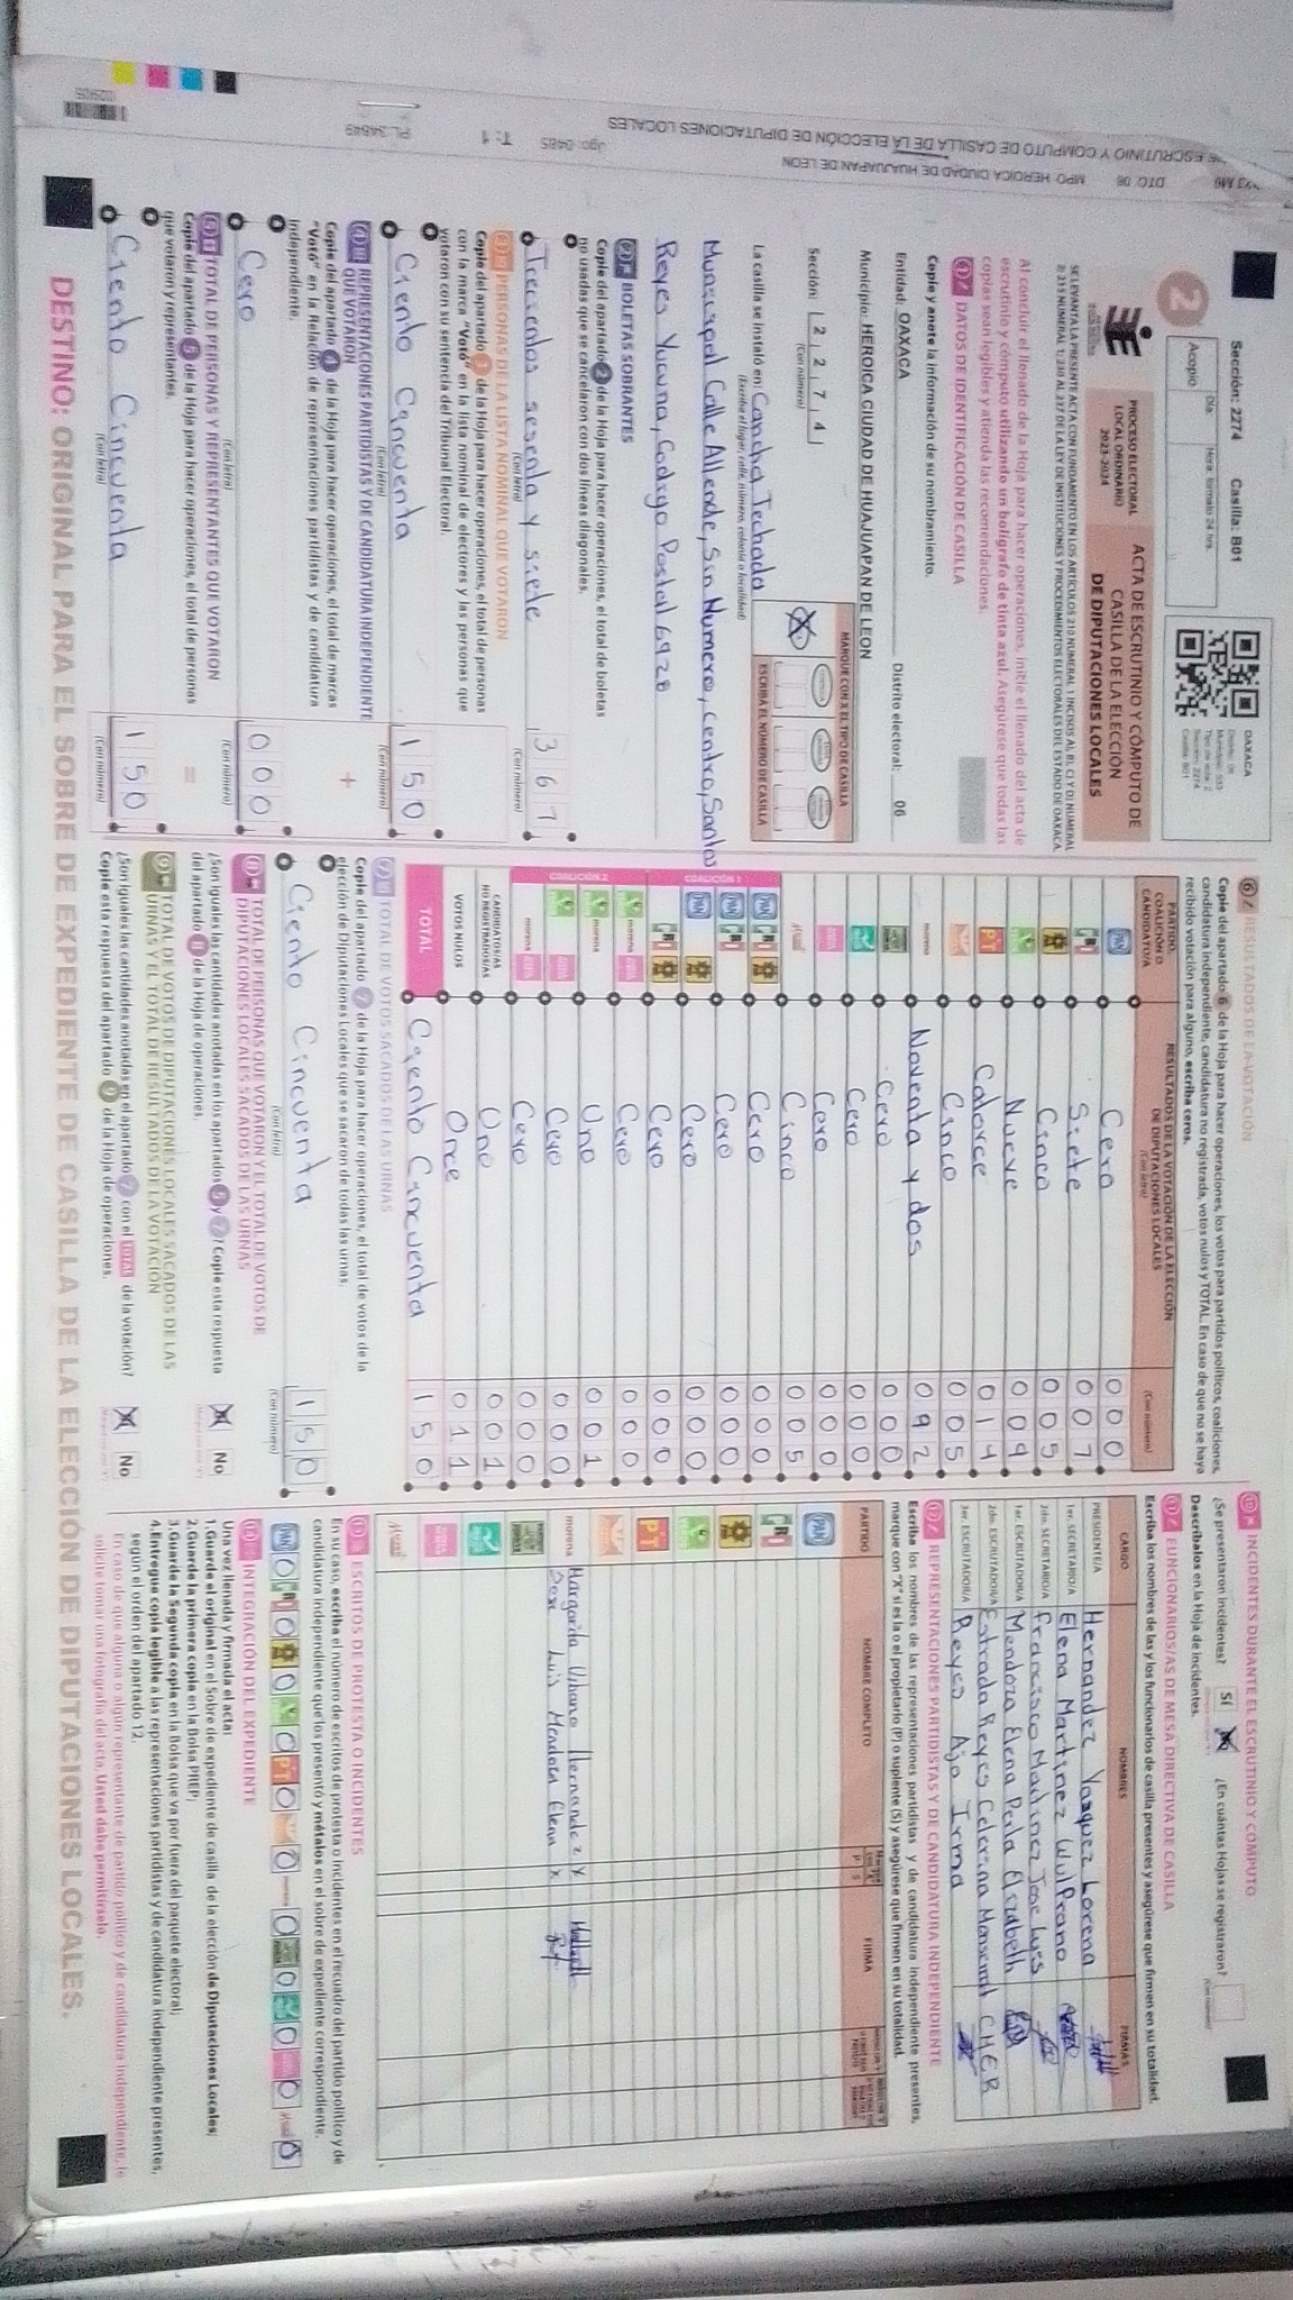 Sección: 2274 Casilla: B01
Acopio
Día:
Hora: formato 24 hrs.
OAXACA
2
PROCESO ELECTORAL
LOCAL ORDINARIO
2023-2024
ACTA DE ESCRUTINIO Y CÓMPUTO DE
CASILLA DE LA ELECCIÓN
DE DIPUTACIONES LOCALES
Al concluir el llenado de la Hoja para hacer operaciones, inicie el llenado del acta de
escrutinio y cómputo utilizando un bolígrafo de tinta azul. Asegúrese que todas las
copias sean legibles y atienda las recomendaciones.
1 DATOS DE IDENTIFICACIÓN DE CASILLA
Copie y anote la información de su nombramiento.
Entidad: OAXACA Distrito electoral: 06
Municipio: HEROICA CIUDAD DE HUAJUAPAN DE LEON
Sección: 2 2 7 4
(Con número)
MARQUE CON X EL TIPO DE CASILLA
ESCRIBA EL NÚMERO DE CASILLA
La casilla se instaló en: Cancha Techada
(Escriba el lugar, calle, número, colonia o localidad)
Municipal Calle Allende, Sin Numero, Centro, Santos
Reyes Yucuna, Codigo Postal 6928
2 BOLETAS SOBRANTES
Copie del apartado 2 de la Hoja para hacer operaciones, el total de boletas
no usadas que se cancelaron con dos líneas diagonales.
Trecientos sesenta y siete 3 6 7
(Con letra) (Con número)
3 PERSONAS DE LA LISTA NOMINAL QUE VOTARON
Copie del apartado 3 de la Hoja para hacer operaciones, el total de personas
con la marca "Votó" en la lista nominal de electores y las personas que
votaron con su sentencia del Tribunal Electoral.
Ciento Cincuenta 1 5 0
(Con letra) (Con número)
4 REPRESENTACIONES PARTIDISTAS Y DE CANDIDATURA INDEPENDIENTE
QUE VOTARON
Copie del apartado 4 de la Hoja para hacer operaciones, el total de marcas
"Votó" en la Relación de representaciones partidistas y de candidatura
independiente.
Cero 0 0 0
(Con letra) (Con número)
5 TOTAL DE PERSONAS Y REPRESENTANTES QUE VOTARON
Copie del apartado 5 de la Hoja para hacer operaciones, el total de personas
que votaron y representantes.
Ciento Cincuenta 1 5 0
(Con letra) (Con número)
6 RESULTADOS DE LA VOTACIÓN
Copie del apartado 6 de la Hoja para hacer operaciones, los votos para partidos políticos, coaliciones,
candidatura independiente, candidatura no registrada, votos nulos y TOTAL. En caso de que no se haya
recibido votación para alguno, escriba ceros.
PARTIDO, COALICIÓN O CANDIDATO/A
RESULTADOS DE LA VOTACIÓN DE LA ELECCIÓN DE DIPUTACIONES LOCALES
(Con letra) (Con número)
PAN Cero 0 0 0
PRI Siete 0 0 7
Cinco 0 0 5
Nueve 0 0 9
PT Catorce 0 1 4
Cinco 0 0 5
morena Noventa y dos 0 9 2
Cero 0 0 0
Cero 0 0 0
Cero 0 0 0
Cinco 0 0 5
COALICIÓN 1
PAN PRI Cero 0 0 0
PAN PRI Cero 0 0 0
PAN Cero 0 0 0
PRI Cero 0 0 0
COALICIÓN 2
morena Cero 0 0 0
morena Uno 0 0 1
Cero 0 0 0
morena Cero 0 0 0
CANDIDATOS/AS NO REGISTRADOS/AS Uno 0 0 1
VOTOS NULOS Once 0 1 1
TOTAL Ciento Cincuenta 1 5 0
7 TOTAL DE VOTOS SACADOS DE LAS URNAS
Copie del apartado 7 de la Hoja para hacer operaciones, el total de votos de la
elección de Diputaciones Locales que se sacaron de todas las urnas.
Ciento Cincuenta 1 5 0
(Con letra) (Con número)
8 TOTAL DE PERSONAS QUE VOTARON Y EL TOTAL DE VOTOS DE
DIPUTACIONES LOCALES SACADOS DE LAS URNAS
¿Son iguales las cantidades anotadas en los apartados 5 y 7? Copie esta respuesta
del apartado 8 de la Hoja de operaciones.
No
9 TOTAL DE VOTOS DE DIPUTACIONES LOCALES SACADOS DE LAS
URNAS Y EL TOTAL DE RESULTADOS DE LA VOTACIÓN
¿Son iguales las cantidades anotadas en el apartado 7 con el TOTAL de la votación?
Copie esta respuesta del apartado 9 de la Hoja de operaciones.
No
10 INCIDENTES DURANTE EL ESCRUTINIO Y CÓMPUTO
¿Se presentaron incidentes? Sí ¿En cuántas Hojas se registraron?
Descríbalos en la Hoja de incidentes.
11 FUNCIONARIOS/AS DE MESA DIRECTIVA DE CASILLA
Escriba los nombres de las y los funcionarios de casilla presentes y asegúrese que firmen en su totalidad.
CARGO NOMBRES FIRMAS
PRESIDENTE/A Hernandez Vazquez Lorena
1er. SECRETARIO/A Elena Martinez Wulfrano
2do. SECRETARIO/A Francisco Martinez Jose Luis
1er. ESCRUTADOR/A Mendoza Elena Perla Elizabeth
2do. ESCRUTADOR/A Estrada Reyes Celerina Monserrat CMER
3er. ESCRUTADOR/A Reyes Ajo Irma
12 REPRESENTACIONES PARTIDISTAS Y DE CANDIDATURA INDEPENDIENTE
Escriba los nombres de las representaciones partidistas y de candidatura independiente presentes,
marque con "X" si es la o el propietario (P) o suplente (S) y asegúrese que firmen en su totalidad.
PARTIDO NOMBRE COMPLETO P S FIRMA
PAN
PRI
PT
morena Margarita Urbano Hernandez X
Jose Luis Mendoza Elena X
13 ESCRITOS DE PROTESTA O INCIDENTES
En su caso, escriba el número de escritos de protesta o incidentes en el recuadro del partido político y de
candidatura independiente que los presentó y métalos en el sobre de expediente correspondiente.
PAN 0 PRI 0 0 0 PT 0 0 0 0 0 0 0
14 INTEGRACIÓN DEL EXPEDIENTE
Una vez llenada y firmada el acta:
1. Guarde el original en el Sobre de expediente de casilla de la elección de Diputaciones Locales;
2. Guarde la primera copia en la Bolsa PREP;
3. Guarde la Segunda copia en la Bolsa que va por fuera del paquete electoral;
4. Entregue copia legible a las representaciones partidistas y de candidatura independiente presentes,
según el orden del apartado 12.
En caso de que alguna o algún representante de partido político y de candidatura independiente, le
solicite tomar una fotografía del acta, Usted debe permitírselo.
DESTINO: ORIGINAL PARA EL SOBRE DE EXPEDIENTE DE CASILLA DE LA ELECCIÓN DE DIPUTACIONES LOCALES.
ESCRUTINIO Y COMPUTO DE CASILLA DE LA ELECCIÓN DE DIPUTACIONES LOCALES
DTO: 06 MPO: HEROICA CIUDAD DE HUAJUAPAN DE LEON
Jgo: 0485 T: 1 PL:34849
02905